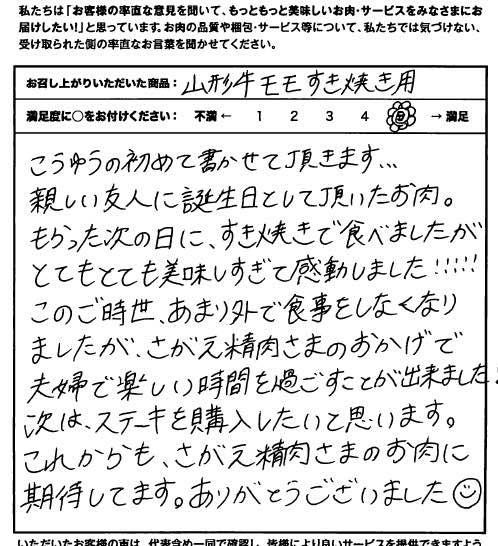 私たちは「お客様の率直な意見を聞いて、もっともっと美味しいお肉・サービスをみなさまにお
届けしたい！」と思っています。お肉の品質や梱包・サービス等について、私たちでは気づけない、
受け取られた側の率直なお言葉を聞かせてください。
お召し上がりいただいた商品： 山形牛モモすき焼き用
満足度に○をお付けください： 不満 ← 1 2 3 4 5 → 満足
こうゆうの初めて書かせて頂きます...
親しい友人に誕生日として頂いたお肉。
もらった次の日に、すき焼きで食べましたが
とてもとても美味しすぎて感動しました!!!!!
このご時世、あまり外で食事をしなくなり
ましたが、さがえ精肉さまのおかげで
夫婦で楽しい時間を過ごすことが出来ました!
次は、ステーキを購入したいと思います。
これからも、さがえ精肉さまのお肉に
期待してます。ありがとうございました☺
いただいたお客様の声は、代表含め一同で確認し、皆様により良いサービスを提供できますよう